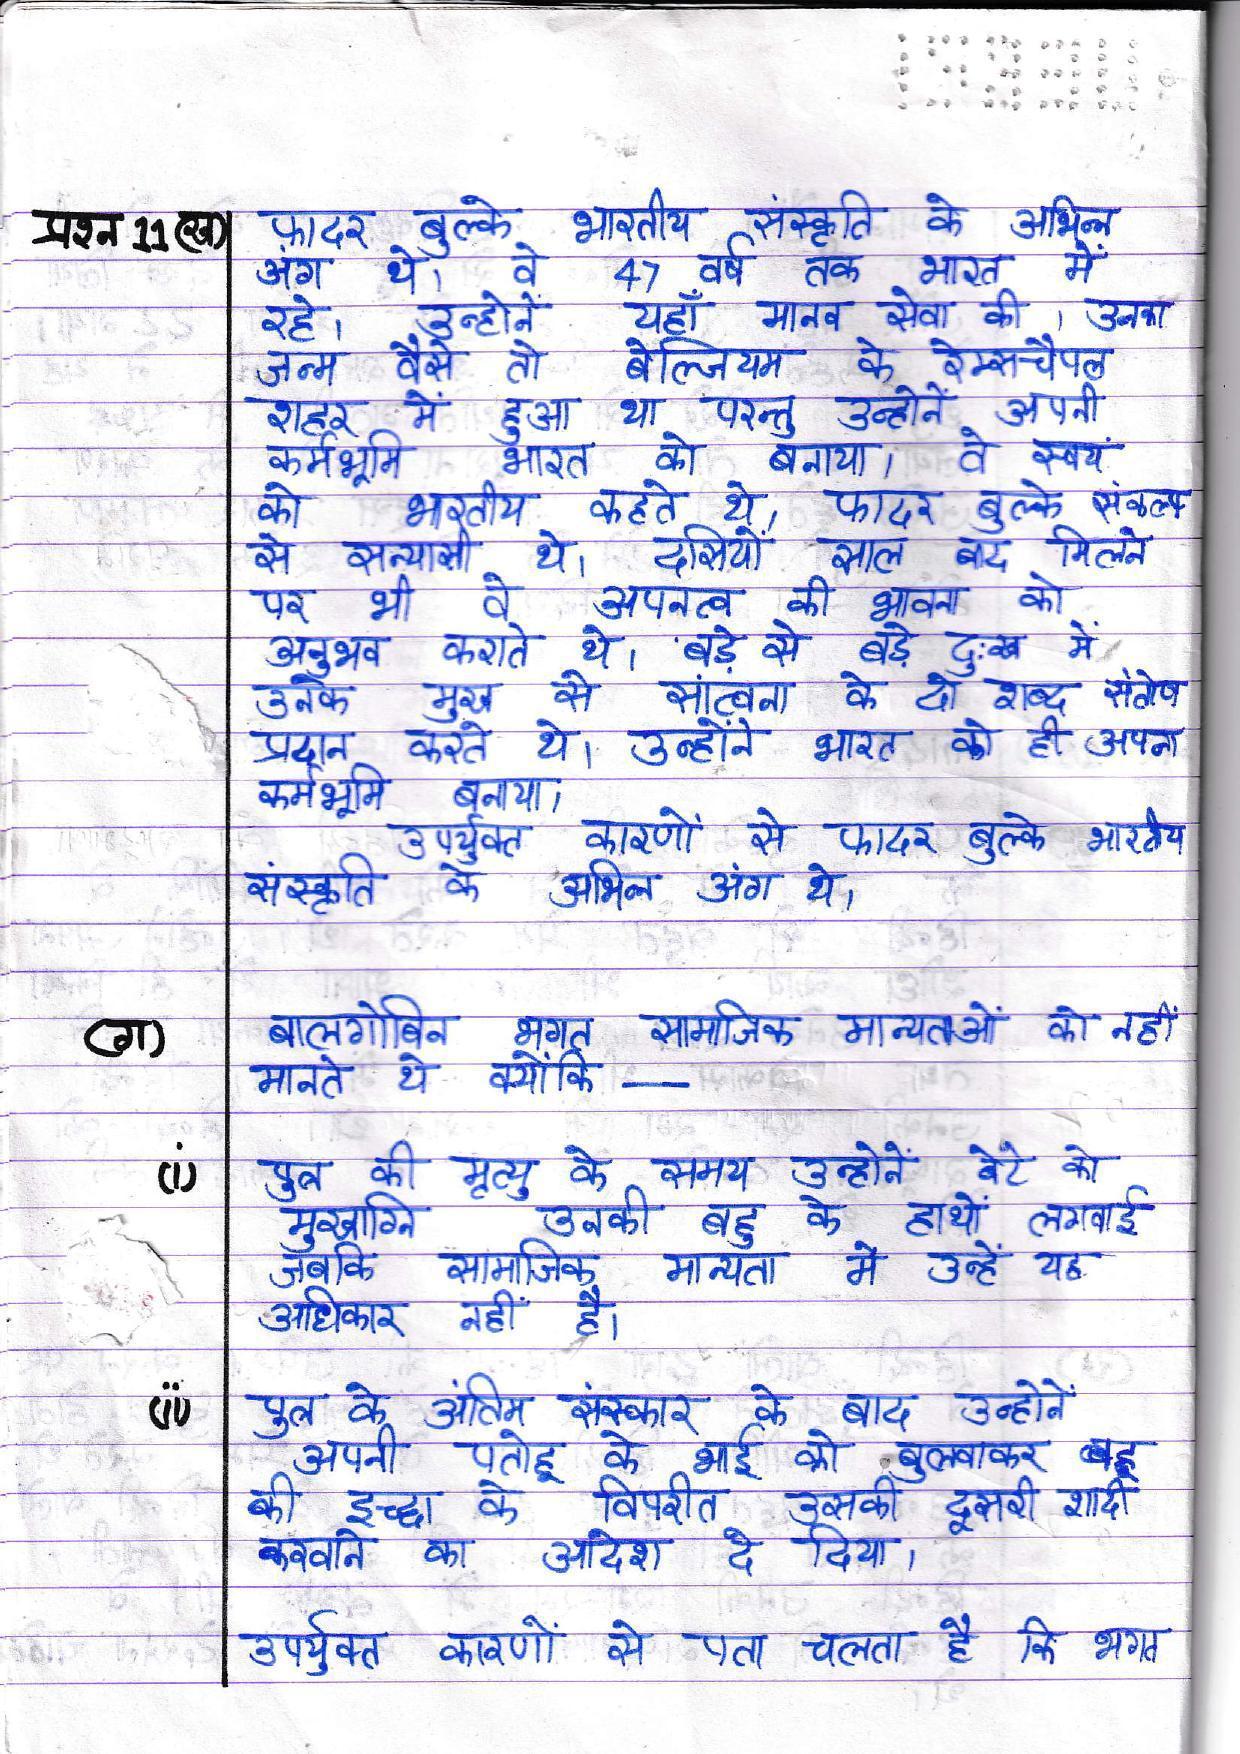 प्रश्न 11 (ख) फ़ादर बुल्के भारतीय संस्कृति के अभिन्न
अंग थे। वे 47 वर्ष तक भारत में
रहे। उन्होनें यहाँ मानव सेवा की। उनका
जन्म वैसे तो बेल्जियम के रेम्सचैपल
शहर में हुआ था परन्तु उन्होनें अपनी
कर्मभूमि भारत को बनाया। वे स्वयं
को भारतीय कहते थे। फादर बुल्के संकल्प
से सन्यासी थे। दसियों साल बाद मिलने
पर भी वे अपनत्व की भावना को
अनुभव कराते थे। बड़े से बड़े दुःख में
उनके मुख से सांत्वना के दो शब्द संतोष
प्रदान करते थे। उन्होंने भारत को ही अपना
कर्मभूमि बनाया।
उपर्युक्त कारणों से फादर बुल्के भारतीय
संस्कृति के अभिन्न अंग थे।
(ग) बालगोबिन भगत सामाजिक मान्यताओं को नहीं
मानते थे क्योंकि —
(i) पुत्र की मृत्यु के समय उन्होनें बेटे को
मुखाग्नि उनकी बहु के हाथों लगवाई
जबकि सामाजिक मान्यता में उन्हें यह
अधिकार नहीं है।
(ii) पुत्र के अंतिम संस्कार के बाद उन्होनें
अपनी पतोहू के भाई को बुलवाकर बहू
की इच्छा के विपरीत उसकी दूसरी शादी
करवाने का आदेश दे दिया।
उपर्युक्त कारणों से पता चलता है कि भगत